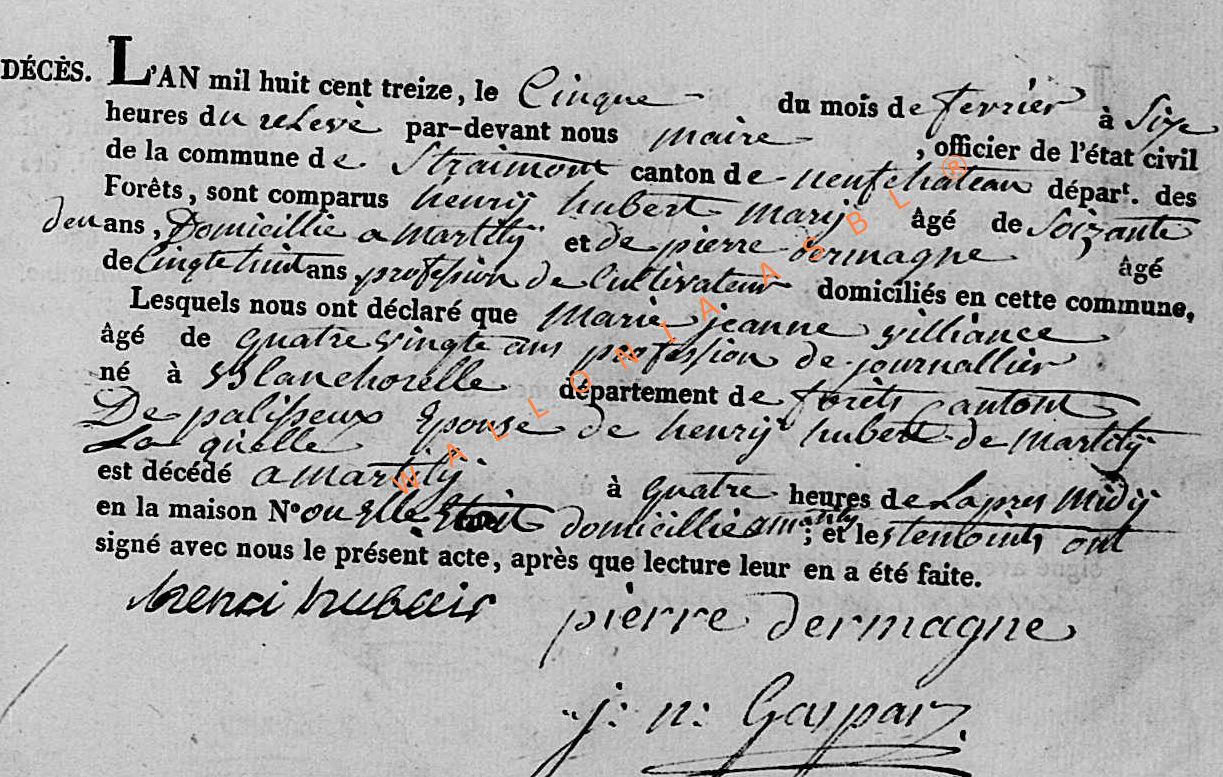 DÉCÈS. L'AN mil huit cent treize, le Cinque du mois de fevrier à Sixe
heures du relevè par-devant nous maire , officier de l'état civil
de la commune de Straimont canton de neufchateau départ. des
Forêts, sont comparus henrij hubert marij âgé de Soizante
deu ans, Domicillie a martilij et de pierre dermagne âgé
de Cinqte huit ans, profession de Cultivateur domiciliés en cette commune,
Lesquels nous ont déclaré que Marie jeanne villiance
âgé de quatre vingte ans profession de journallier
né à Blanchorelle département de forêts Cantont
De palisseux Epouse de henrij hubert de martilij
La quelle
est décédé a martilij à quatre heures de Lapres Midij
en la maison No ou elle Etoit domicillie a martilij ; et les temoints ont
signé avec nous le présent acte, après que lecture leur en a été faite.
henri hubair pierre dermagne
j: n: Gaspar
WALLONIA ASBL ®